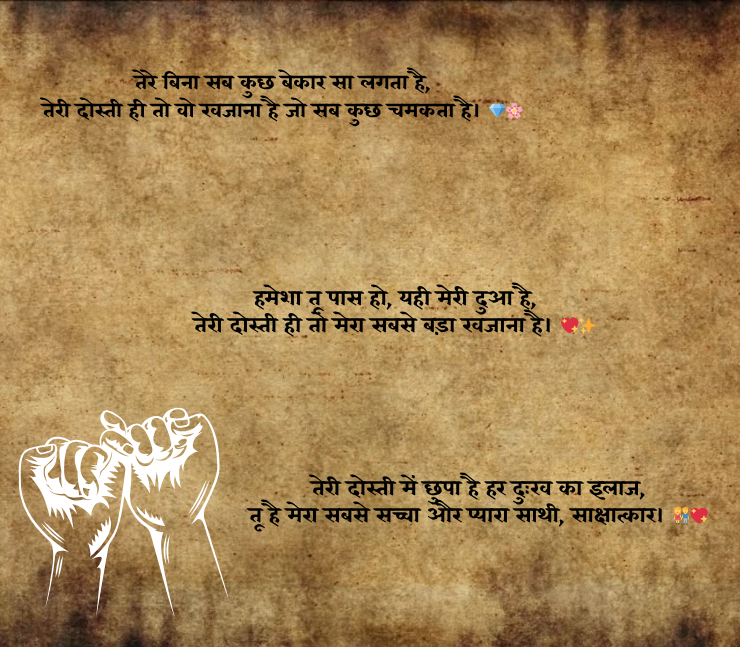 तेरे बिना सब कुछ बेकार सा लगता है,
तेरी दोस्ती ही तो वो खजाना है जो सब कुछ चमकता है। 💎🌸
हमेशा तू पास हो, यही मेरी दुआ है,
तेरी दोस्ती ही तो मेरा सबसे बड़ा खजाना है। 💖✨
तेरी दोस्ती में छुपा है हर दुःख का इलाज,
तू है मेरा सबसे सच्चा और प्यारा साथी, साक्षात्कार। 👫💖